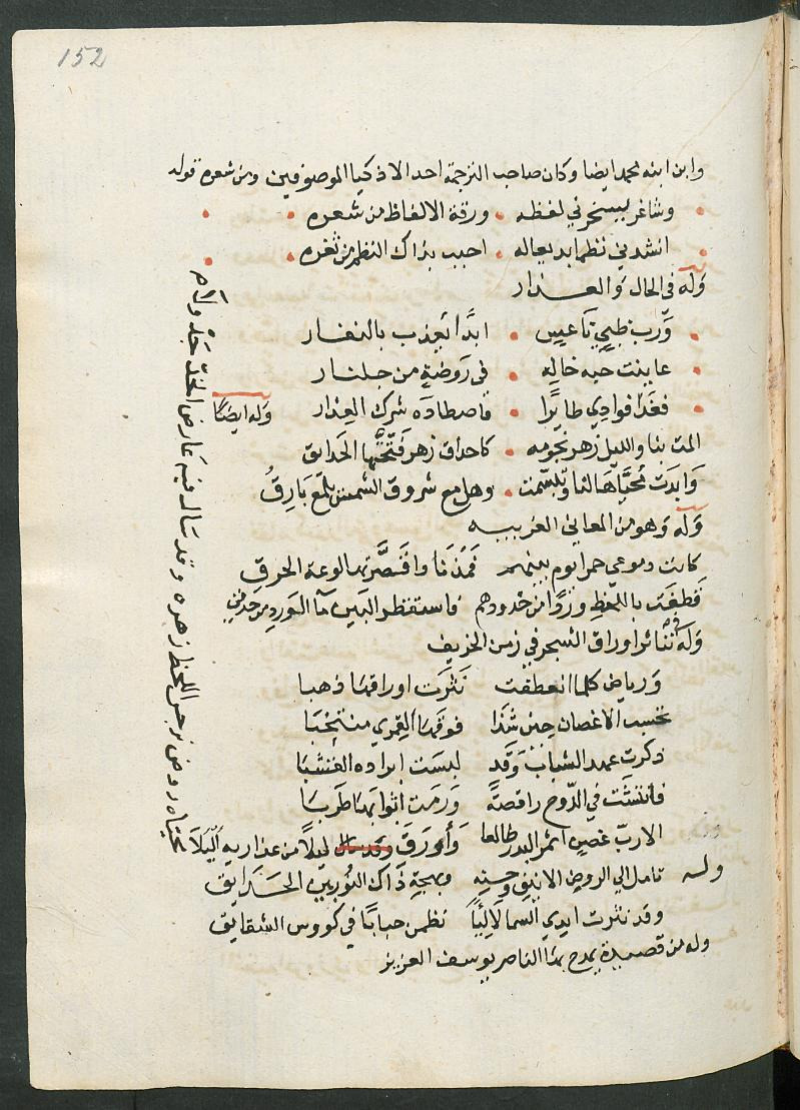 152
وابن ابنه محمد ايضا وكان صاحب الترجمة احد الاذكيا الموصوفين ومن شعره قوله
وشاعر يسخرني لفظه ورقة الالفاظ من شعره
انشدني نظما بديعا له احبب بذاك النظم من ثغره
وله في الخال والعذار
وَرب ظبي نَاعس ابدًا يعذب بالنفار
عاينت حبه خاله في رَوضةٍ من جلنار
فغَدَا فوادي طايرًا فاصطاده شرك العِذار وله ايضًا
المت بنا والليل زهر نجومه كاحداق زهر فَتَّحتها الحَدايق
وَابدَت مُحيَّاهَا لنا وتبسَّمت وهل مع شروق الشمس يلمع بَارِقُ
وَله وهو من المعاني الغريبه
كانت دموعي حمرا يوم بينهم فمُذ نَا واقصَّرتها لوعة الحرقِ
قطفت باللّحظ وردًا من خدودهم فاستقطر البين مآ الورد من حدقي
وَله في تناثر اوراق الشجر في زمن الخريف
وَرياض كلما انعطفت نثرَت اوراقها ذهبا
تحسب الاغصان حين شَدَا فوقها القمري منتحبَا
ذكرت عهد الشباب وَقد لبسَت ابراده القشبَا
فانثنَت في الدّوح راقصةً وَرمَت اثوابها طَربَا
الا ربّ غصنٍ اثمر البدر طالعا وَأورَقَ ليلاً من عذاريه ألْيَلَا
وله تامل الي الروض الانيق وحسنه وبهجة ذَاك النور بين الحَدَايق
وقد نثرت ايدي السما لآلئًا نظمن حبابًا في كووس الشقايق
وله من قصيدة يمدح بها الناصر يوسف العزيز
محياه روض نرجس اللحظ زهره وقد سال فيه عارض الخدّ جَدْولا م